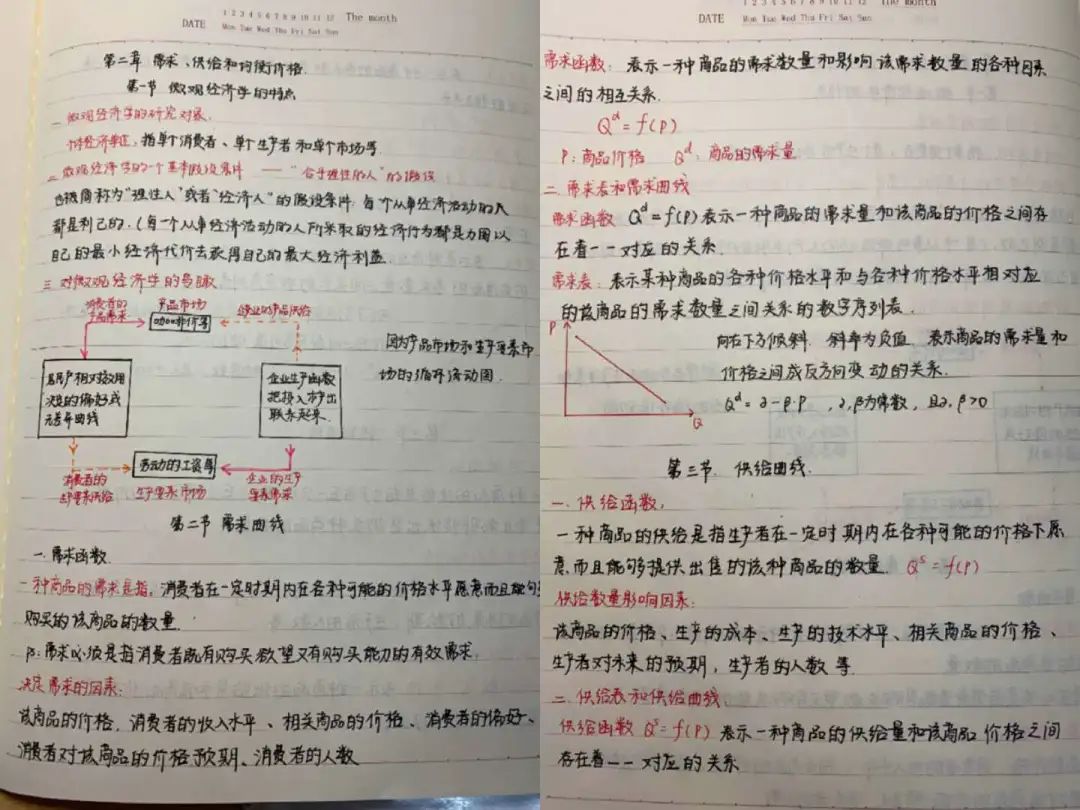 1 2 3 4 5 6 7 8 9 10 11 12 The month
DATE Mon Tue Wed Thu Fri Sat Sun
第二章 需求、供给和均衡价格.
第一节 微观经济学的特点
一. 微观经济学的研究对象.
个体经济单位, 指单个消费者、单个生产者和单个市场等.
二. 微观经济学的一个基本假设条件 —— "合乎理性的人"的假设
也被简称为"理性人"或者"经济人"的假设条件: 每个从事经济活动的人
都是利己的. (每一个从事经济活动的人所采取的经济行为都是力图以
自己的最小经济代价去获得自己的最大经济利益.
三. 对微观经济学的鸟瞰
消费者的
产品需求
产品市场
咖啡价等
企业的产品供给
因为产品市场和生产要素市
场的循环流动图.
居民户相对效用
决定的偏好或
无差异曲线
企业生产函数
把投入和产出
联系起来.
消费者的
生产要素供给
劳动的工资等
生产要素市场
企业的生产
要素需求
第二节 需求曲线
一. 需求函数.
一种商品的需求是指: 消费者在一定时期内在各种可能的价格水平愿意而且能够
购买的该商品的数量.
ps: 需求必须是指消费者既有购买欲望又有购买能力的有效需求.
决定需求的因素:
该商品的价格. 消费者的收入水平、相关商品的价格、消费者的偏好、
消费者对该商品的价格预期、消费者的人数
1 2 3 4 5 6 7 8 9 10 11 12 The month
DATE Mon Tue Wed Thu Fri Sat Sun
需求函数: 表示一种商品的需求数量和影响该需求数量的各种因素
之间的相互关系.
Qᵈ = f(P)
P: 商品价格 Qᵈ: 商品的需求量
二. 需求表和需求曲线
需求函数 Qᵈ = f(P) 表示一种商品的需求量和该商品的价格之间存
在着一一对应的关系.
需求表: 表示某种商品的各种价格水平和与各种价格水平相对应
的该商品的需求数量之间关系的数字序列表.
P
向右下方倾斜. 斜率为负值, 表示商品的需求量和
价格之间成反方向变动的关系.
Qᵈ = α - β·P , α,β为常数, 且α,β>0
Q
第三节. 供给曲线.
一. 供给函数.
一种商品的供给是指生产者在一定时期内在各种可能的价格下愿
意而且能够提供出售的该种商品的数量. Qˢ = f(P)
供给数量影响因素:
该商品的价格、生产的成本、生产的技术水平、相关商品的价格、
生产者对未来的预期, 生产者的人数等.
二. 供给表和供给曲线.
供给函数 Qˢ = f(P) 表示一种商品的供给量和该商品价格之间
存在着一一对应的关系